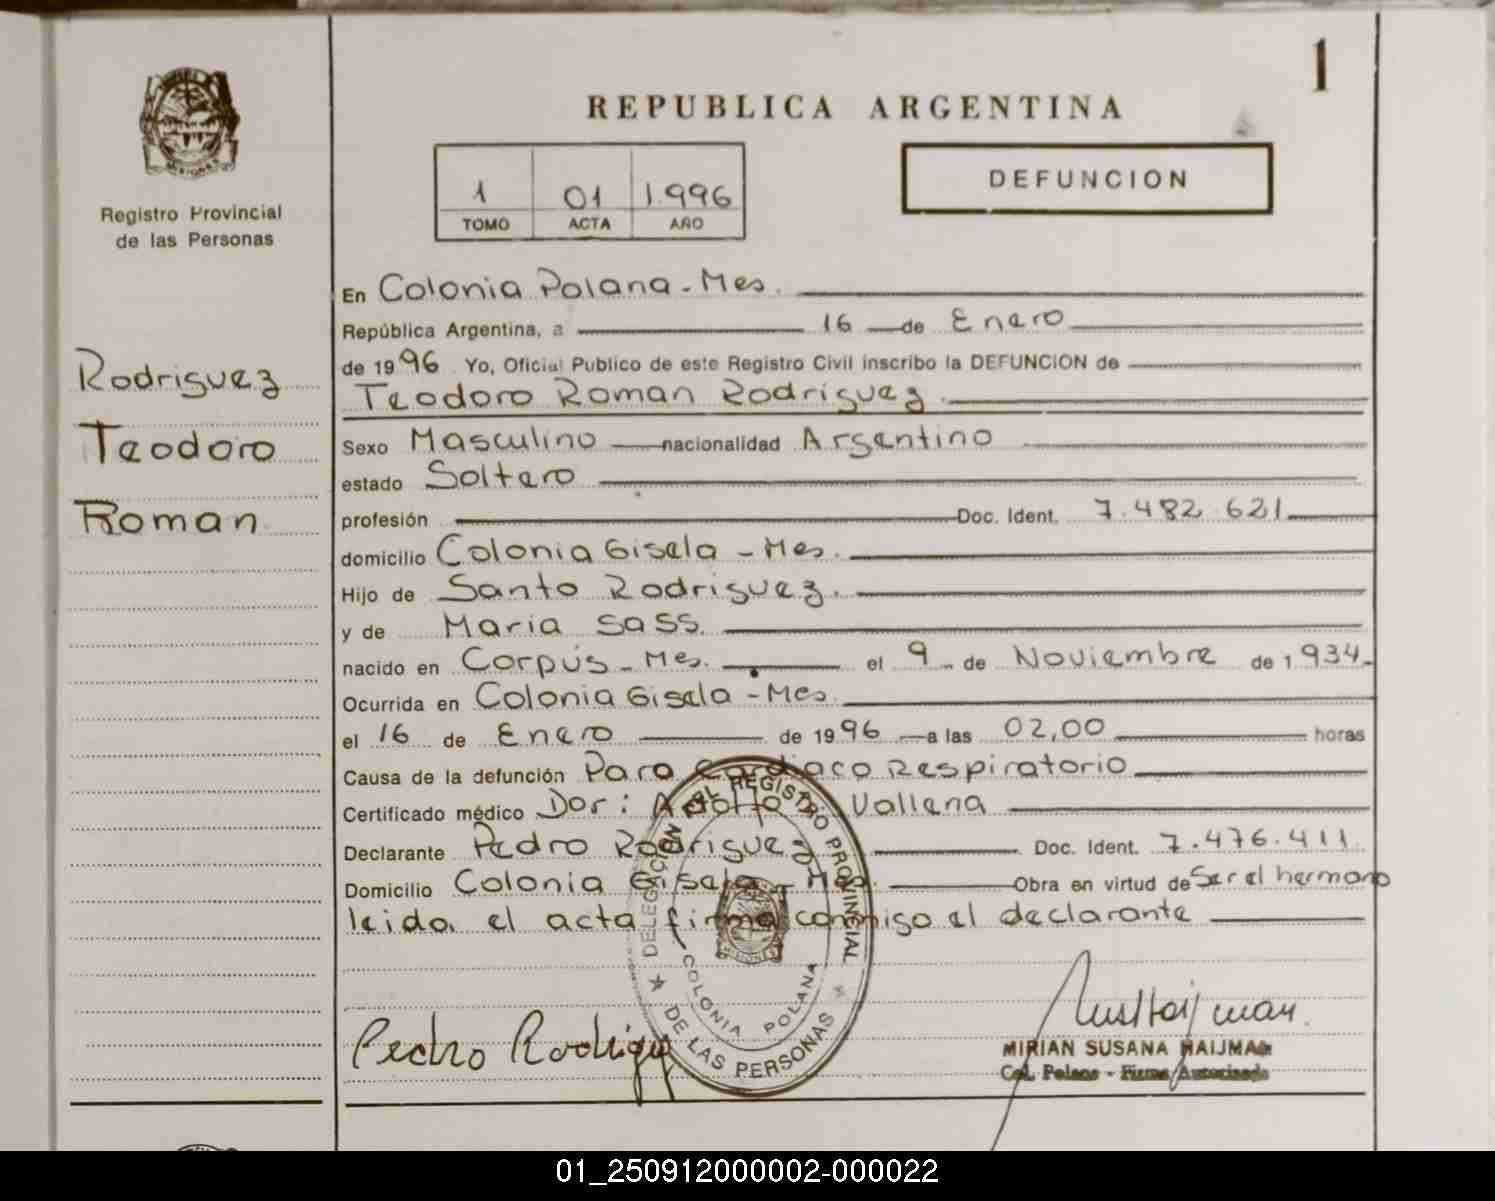 1
REPUBLICA ARGENTINA
MISIONES
Registro Provincial
de las Personas
1 01 1.996
TOMO ACTA AÑO
DEFUNCION
Rodriguez
Teodoro
Roman
En Colonia Polana - Mes.
República Argentina, a 16 de Enero
de 1996 Yo, Oficial Publico de este Registro Civil inscribo la DEFUNCION de
Teodoro Roman Rodríguez.
Sexo Masculino nacionalidad Argentino
estado Soltero
profesión Doc. Ident. 7.482.621
domicilio Colonia Gisela - Mes.
Hijo de Santo Rodriguez.
y de Maria Sass.
nacido en Corpús - Mes. el 9 de Noviembre de 1934
Ocurrida en Colonia Gisela - Mes.
el 16 de Enero de 1996 a las 02,00 horas
Causa de la defunción Paro Cardiaco Respiratorio
Certificado médico Dor: Adolfo Vallena
Declarante Pedro Rodriguez Doc. Ident. 7.476.411.
Domicilio Colonia Gisela - Mes. Obra en virtud de Ser el hermano
leida el acta firma conmigo el declarante
DELEGACION DEL REGISTRO PROVINCIAL
DE LAS PERSONAS
COLONIA POLANA
MISIONES
Pedro Rodrigez
MIRIAN SUSANA HAIJMAN
Col. Polana - Firma Autorizada
01_250912000002-000022